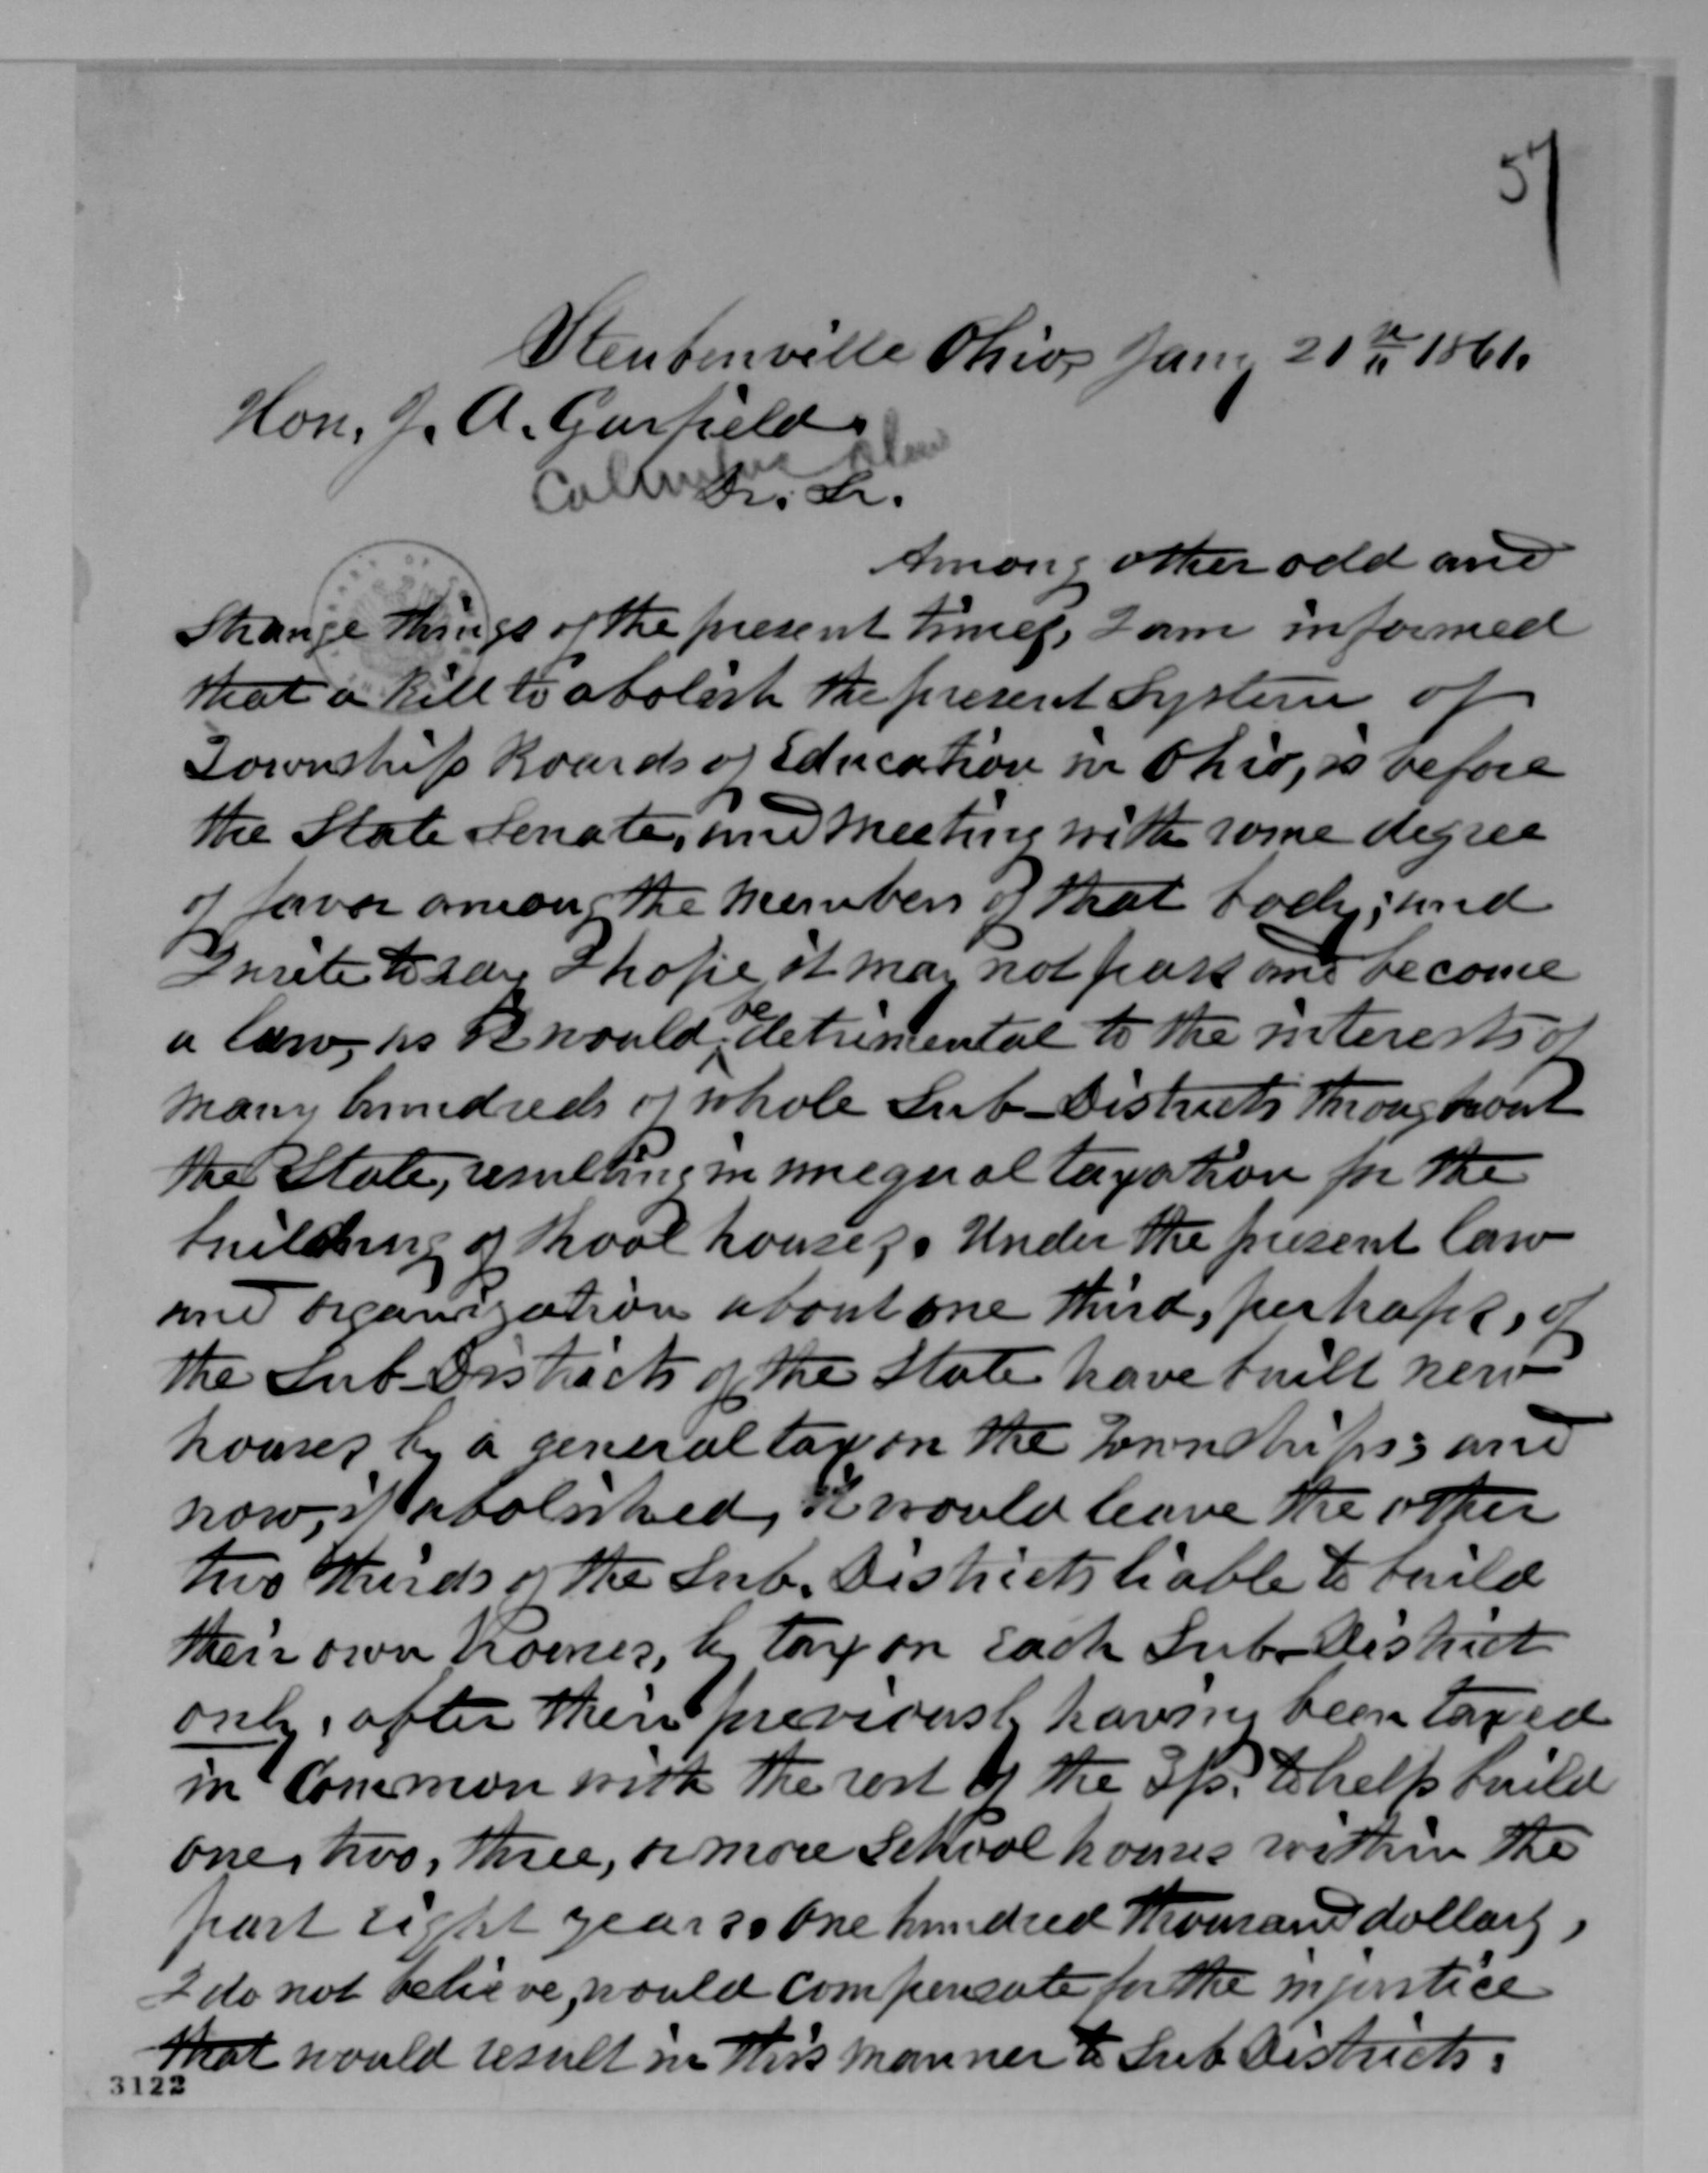 57
Steubenville Ohio, Jany 21st 1861.
Hon. J. A. Garfield.
Columbus Ohio
Dr. Sr.
Among other odd and
Strange things of the present times, I am informed
that a Bill to abolish the present System of
Township Boards of Education in Ohio, is before
the State Senate, and meeting with some degree
of favor among the members of that body; and
I write to say I hope it may not pass and become
a law, as it would be detrimental to the interests of
many hundreds of whole Sub-Districts throughout
the State, resulting in unequal taxation for the
building of School houses. Under the present law
and organization about one third, perhaps, of
the Sub-Districts of the State have built new
houses by a general tax on the Townships; and
now, if abolished, it would leave the other
two thirds of the Sub-Districts liable to build
their own houses, by tax on Each Sub-District
only, after their previously having been taxed
in Common with the rest of the Tp. to help build
one, two, three, or more School houses within the
past eight years. One hundred thousand dollars,
I do not believe, would compensate for the injustice
that would result in this manner to Sub Districts.
3122